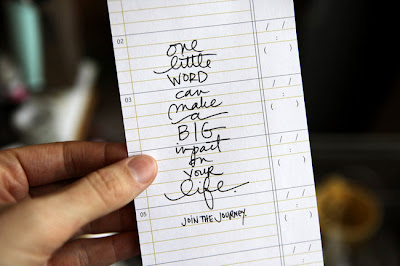 02
one
little
WORD
can
03
make
a
BIG
impact
on
your
life.
05
JOIN THE JOURNEY.